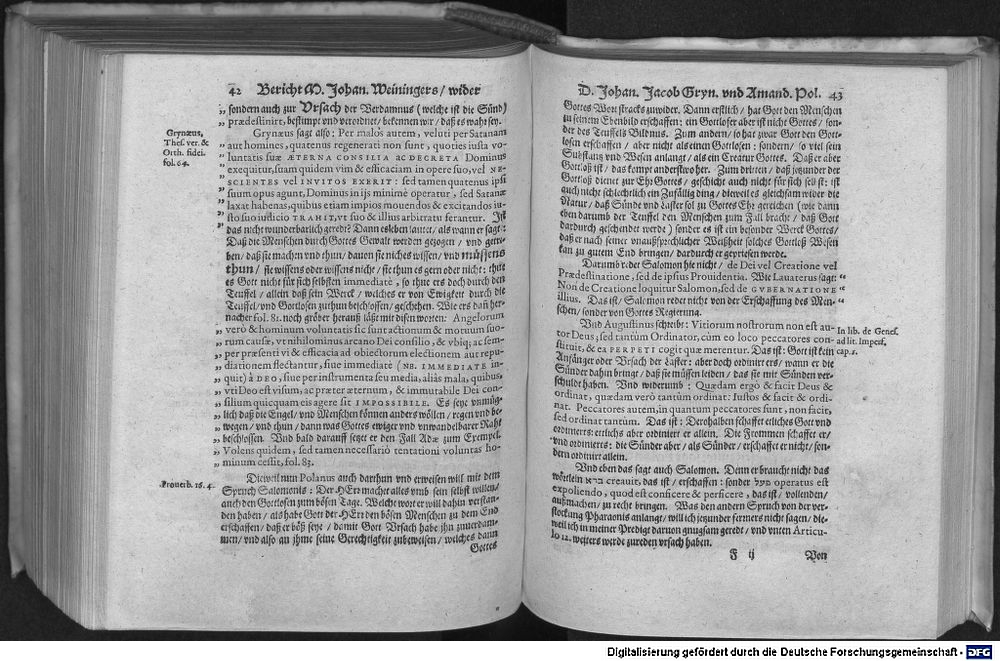 42 Bericht M. Johan. Weiningers / wider
sondern auch zur Vrsach der Verdamnus (welche ist die Sünd)
prædestinirt, bestimpt vnd verordnet / bekennen wir / daß es wahr sey.
Grynæus,
Thes. ver. &
Orth. fidei.
fol. 64.
Grynæus sagt also: Per malos autem, veluti per Satanam
aut homines, quatenus regenerati non sunt, quoties iusta vo-
luntatis suæ ÆTERNA CONSILIA AC DECRETA Dominus
exequitur, suam quidem vim & efficaciam in opere suo, vel NE-
SCIENTES vel INVITOS EXERIT: sed tamen quatenus ipsi
suum opus agunt, Dominus in ijs minimè operatur, sed Satanæ
laxat habenas, quibus etiam impios mouendos & excitandos iu-
sto suo iudicio TRAHIT, vt suo & illius arbitratu ferantur. Ist
das nicht wunderbarlich geredt? Dann es eben lautet / als wann er sagt:
Daß die Menschen durch Gottes Gewalt werden gezogen / vnd getrie-
ben / daß sie machen vnd thun / dauon sie nichts wissen / vnd müssens
thun / sie wissens oder wissens nicht / sie thun es gern oder nicht: thue
es Gott nicht für sich selbsten immediatè, so thue ers doch durch den
Teuffel / allein daß sein Werck / welches er von Ewigkeit durch die
Teuffel / vnd Gottlosen zuthun beschlossen / geschehen. Wie ers dan her-
nacher fol. 81. noch gröber herauß läßt mit disen worten: Angelorum
verò & hominum voluntatis sic sunt actionum & motuum suo-
rum causæ, vt nihilominus arcano Dei consilio, & vbiq; ac sem-
per præsenti vi & efficacia ad obiectorum electionem aut repu-
diationem flectantur, siue immediatè (NB. IMMEDIATE in-
quit) à DEO, siue per instrumenta seu media, aliàs mala, quibus,
vti Deo est visum, ac præter æternum, & immutabile Dei con-
silium quicquam eis agere sit IMPOSSIBILE. Es seye vnmüg-
lich daß die Engel / vnd Menschen können anders wöllen / regen vnd be-
wegen / vnd thun / dann was Gottes ewiger vnd vnwandelbarer Raht
beschlossen. Vnd bald darauff setzet er den Fall Adæ zum Exempel.
Volens quidem, sed tamen necessariò tentationi voluntas ho-
minum cessit, fol. 83.
Prouerb. 16. 4.
Dieweil nun Polanus auch darthun vnd erweisen will mit dem
Spruch Salomonis: Der HErr machet alles vmb sein selbst willen /
auch den Gottlosen zum bösen Tage. Welche wort er will dahin verstan-
den haben / als habe Gott der HErr den bösen Menschen zu dem End
erschaffen / daß er böß seye / damit Gott Vrsach habe jhn zuuerdam-
men / vnd also an jhme seine Gerechtigkeit zubeweisen / welches dann
Gottes
D. Johan. Jacob Gryn. vnd Amand. Pol. 43
Gottes Wort stracks zuwider. Dann erstlich / hat Gott den Menschen
zu seinem Ebenbild erschaffen: ein Gottloser aber ist nicht Gottes / son-
der des Teuffels Bildnus. Zum andern / so hat zwar Gott den Gott-
losen erschaffen / aber nicht als einen Gottlosen: sondern / so viel sein
Substanz vnd Wesen anlangt / als ein Creatur Gottes. Daß er aber
Gottloß ist / das kompt anderstwo her. Zum dritten / daß jetzunder der
Gottloß dienet zur Ehr Gottes / geschicht auch nicht für sich selbst: ist
auch nicht schlechtlich ein Zufällig ding / dieweil es gleichsam wider die
Natur / daß Sünde vnd Laster sol zu Gottes Ehr gereichen (wie dann
eben darumb der Teuffel den Menschen zum Fall bracht / daß Gott
dardurch geschendet werde) sonder es ist ein besonder Werck Gottes /
daß er nach seiner vnaußsprechlicher Weißheit solches Gottloß Wesen
kan zu gutem End bringen / dardurch er gepriesen werde.
Darumb redet Salomon hie nicht / de Dei vel Creatione vel
Prædestinatione, sed de ipsius Prouidentia. Wie Lauaterus sagt:
Non de Creatione loquitur Salomon, sed de GVBERNATIONE
illius. Das ist / Salomon redet nicht von der Erschaffung des Men-
schen / sonder von Gottes Regierung.
In lib. de Genes.
ad lit. Imperf.
cap. 5.
Vnd Augustinus schreibt: Vitiorum nostrorum non est au-
tor Deus; sed tantùm Ordinator, cùm eo loco peccatores con-
stituit, & ea PERPETI cogit quæ merentur. Das ist: Gott ist kein
Anfänger oder Vrsach der Laster: aber doch ordinirt ers / wann er die
Sünder dahin bringt / daß sie müssen leiden / das sie mit Sünden ver-
schuldt haben. Vnd widerumb: Quædam ergò & facit Deus &
ordinat, quædam verò tantùm ordinat: Iustos & facit & ordi-
nat. Peccatores autem, in quantum peccatores sunt, non facit,
sed ordinat tantùm. Das ist: Derohalben schaffet etliches Gott vnd
ordinierts: etlichs aber ordiniert er allein. Die Frommen schaffet er /
vnd ordinierts: die Sünder aber / als Sünder / erschaffet er nicht / son-
dern ordinirt allein.
Vnd eben das sagt auch Salomon. Denn er braucht nicht das
wörtlein ברא creauit, das ist / erschaffen: sonder פעל operatus est
expoliendo, quod est conficere & perficere, das ist / vollenden /
außmachen / zu recht bringen. Was den andern Spruch von der ver-
stockung Pharaonis anlangt / will ich jetzunder ferners nicht sagen / die-
weil ich in meiner Predigt daruon gnugsam geredt / vnd vnten Articu-
lo 12. weiters werde zureden vrsach haben.
F ij
Von
Digitalisierung gefördert durch die Deutsche Forschungsgemeinschaft - DFG